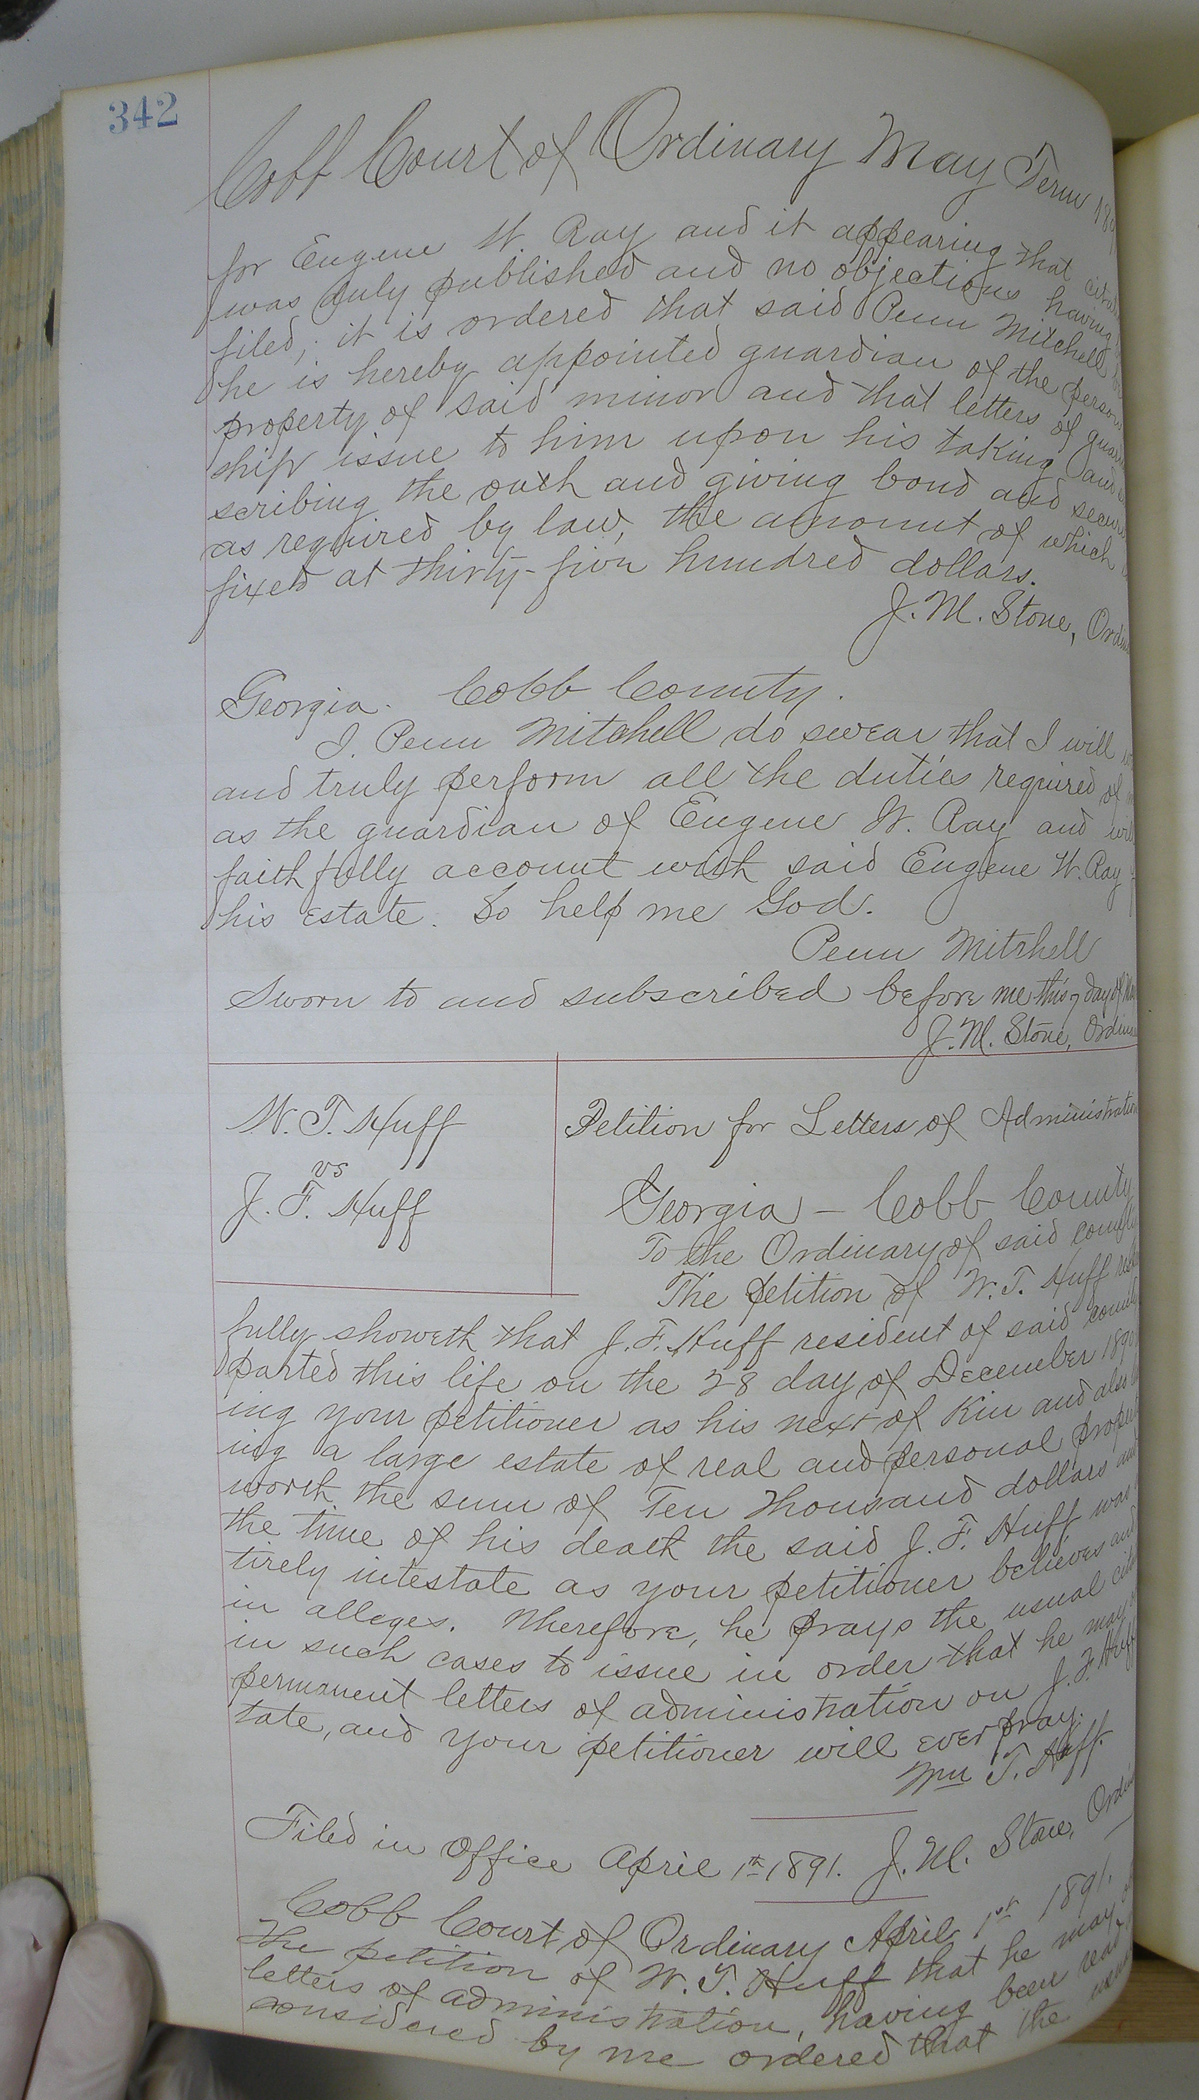 342
Cobb Court of Ordinary May Term 189
for Eugene W. Ray and it appearing that
was duly published and no objections having
filed; it is ordered that said Penn Mitchell
he is hereby appointed guardian of the person
property of said minor and that letters of
ship issue to him upon his taking and
scribing the oath and giving bond and
as required by law, the amount of which
fixed at thirty-five hundred dollars.
J. M. Stone,
Georgia. Cobb County.
I. Penn Mitchell do swear that I will
and truly perform all the duties required of
as the guardian of Eugene W. Ray and
faithfully account with said Eugene W. Ray
his estate. So help me God.
Penn Mitchell
Sworn to and subscribed before me this 7 day of
J. M. Stone,
W. T. Huff
vs
J. F. Huff
Petition for Letters of Administration
Georgia – Cobb County
To the Ordinary of said county
The petition of W. T. Huff
fully showeth that J. F. Huff resident of said county
parted this life on the 28 day of December 1890
ing your petitioner as his next of Kin and also
ing a large estate of real and personal
worth the sum of Ten Thousand dollars and
the time of his death the said J. F. Huff was
tirely intestate as your petitioner believes and
in alleges. Wherefore, he prays the usual
in such cases to issue in order that he may
permanent letters of administration on J. F. Huff
tate, and your petitioner will ever pray.
Wm T. Huff.
Filed in Office April 1st 1891. J. M. Stone,
Cobb Court of Ordinary April 1st 1891.
The petition of W. T. Huff that he may
letters of administration, having been read
considered by me ordered that the